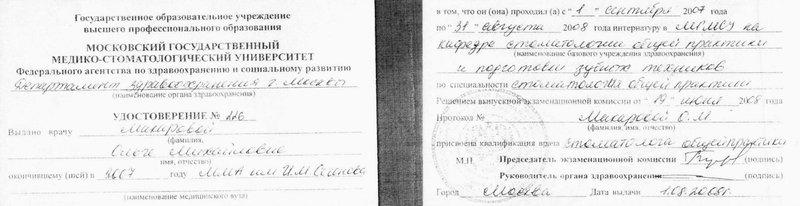 Государственное образовательное учреждение
высшего профессионального образования
МОСКОВСКИЙ ГОСУДАРСТВЕННЫЙ
МЕДИКО-СТОМАТОЛОГИЧЕСКИЙ УНИВЕРСИТЕТ
Федерального агентства по здравоохранению и социальному развитию
Департамент здравоохранения г. Москвы
(наименование органа здравоохранения)
УДОСТОВЕРЕНИЕ № 226
Выдано врачу Макаровой
(фамилия,
Ольге Михайловне
имя, отчество)
окончившему (шей) в 2007 году ММА им И.М. Сеченова
(наименование медицинского вуза)
в том, что он (она) проходил (а) с "1" сентября 2007 года
по "31" августа 2008 года интернатуру в МГМСУ на
кафедре стоматологии общей практики
(наименование базового учреждения здравоохранения)
и подготовки зубных техников
по специальности стоматология общей практики
Решением выпускной экзаменационной комиссии от "19" июня 2008 года
Протокол № Макаровой О.М
(фамилия, имя, отчество)
присвоена квалификация врача стоматолога общей практики
М.П. Председатель экзаменационной комиссии (подпись)
Руководитель органа здравоохранения (подпись)
Город Москва Дата выдачи 1.08.2008г.